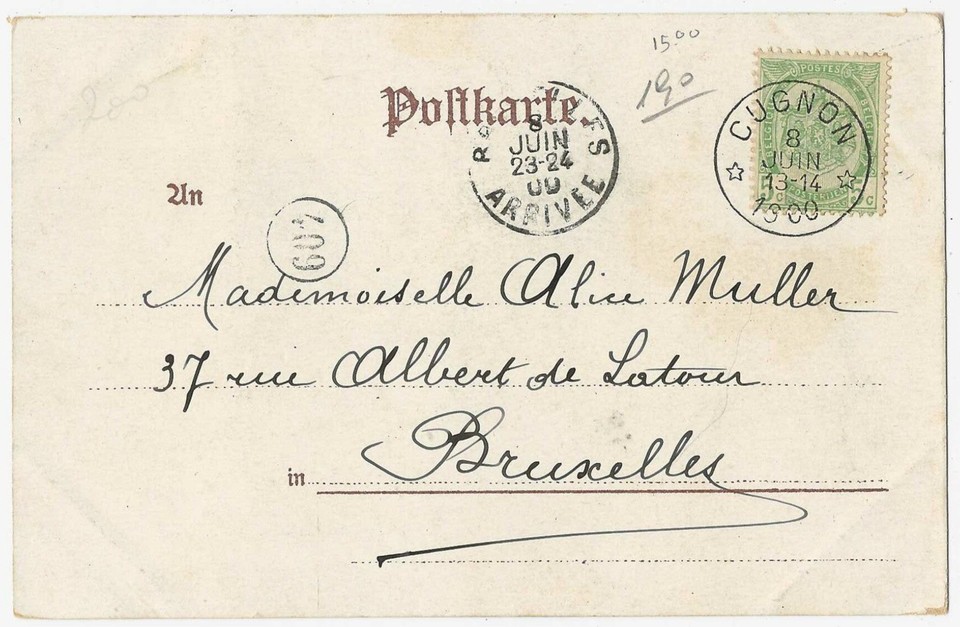 15.00
190
Postkarte.
POSTES
CUGNON
8
JUIN
13-14
1900
8
JUIN
23-24
00
ARRIVEE
An
409
Mademoiselle Alice Muller
37 rue Albert de Latour
in Bruxelles